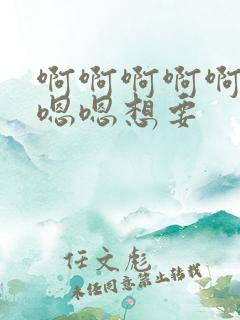 啊啊啊啊啊
嗯嗯想要
任文彪
未经同意禁止转载